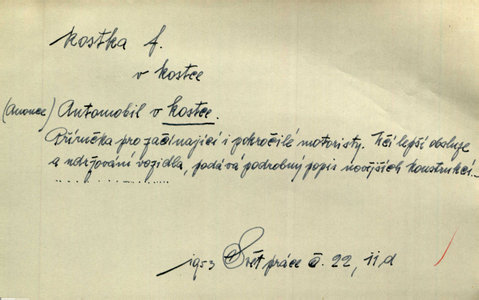 kostka f.
v kostce
(Anonce) Automobil v kostce.
Příručka pro začínající i pokročilé motoristy. Učí lepší obsluze
a udržování vozidla, podává podrobný popis novějších konstrukcí...
1953 Svět práce č. 22, II d